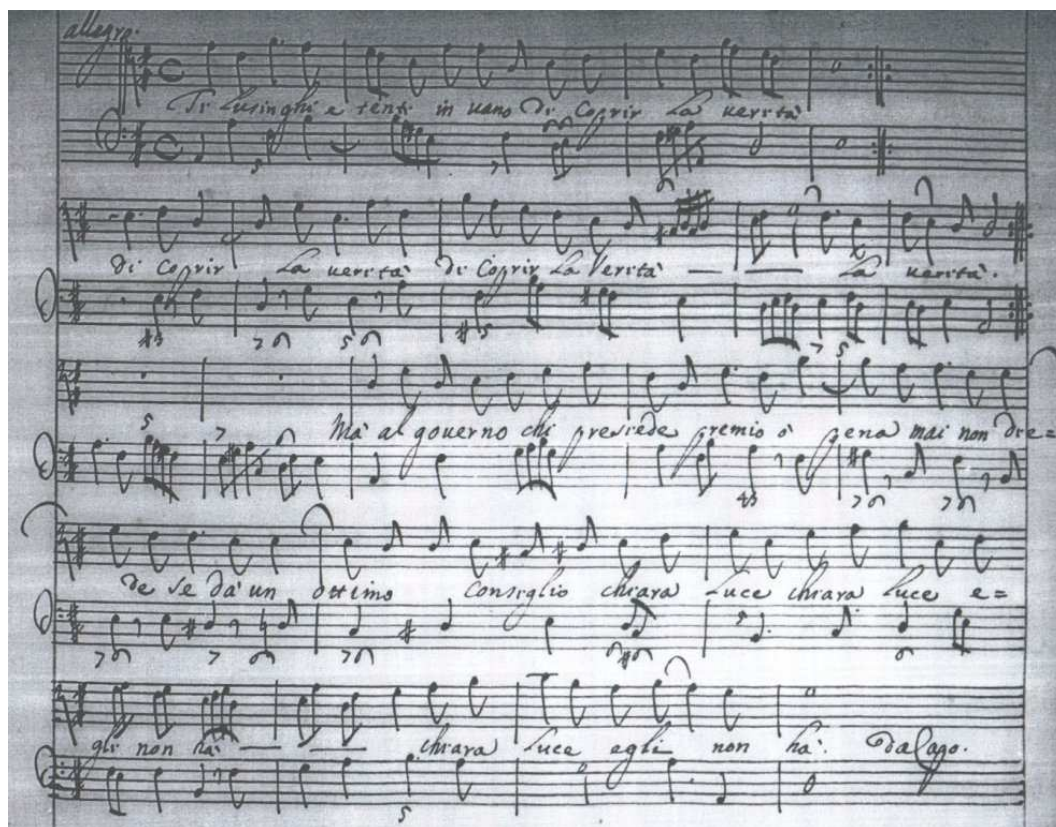 allegro.
Ti lusinghi e tenti in uano di coprir La uerità
di coprir La uerità di Coprir La Verità — — La uerità.
Mà al gouerno chi presiede premio ò pena mai non die=
de se dà un ottimo Consiglio chiara Luce chiara luce e=
gli non hà — — chiara luce egli non hà. Da Capo.